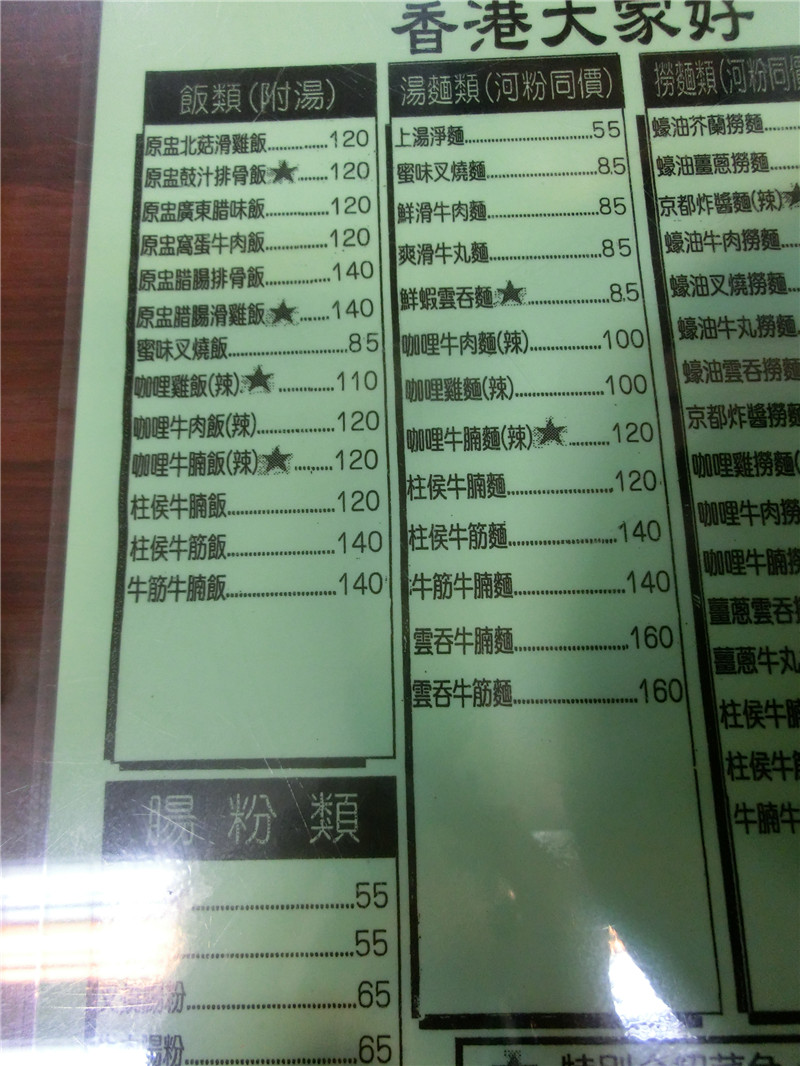 香港大家好
飯類(附湯)
原盅北菇滑雞飯............120
原盅鼓汁排骨飯★......120
原盅廣東腊味飯............120
原盅窩蛋牛肉飯............120
原盅腊腸排骨飯............140
原盅腊腸滑雞飯★......140
蜜味叉燒飯....................85
咖哩雞飯(辣)★............110
咖哩牛肉飯(辣)............120
咖哩牛腩飯(辣)★........120
柱侯牛腩飯....................120
柱侯牛筋飯....................140
牛筋牛腩飯....................140
腸粉類
55
55
腸粉....................65
腸粉....................65
湯麵類(河粉同價)
上湯淨麵....................55
蜜味叉燒麵....................85
鮮滑牛肉麵....................85
爽滑牛丸麵....................85
鮮蝦雲吞麵★..............85
咖哩牛肉麵(辣)............100
咖哩雞麵(辣)................100
咖哩牛腩麵(辣)★........120
柱侯牛腩麵....................120
柱侯牛筋麵....................140
牛筋牛腩麵....................140
雲吞牛腩麵....................160
雲吞牛筋麵....................160
撈麵類(河粉同價
蠔油芥蘭撈麵
蠔油薑蔥撈麵
京都炸醬麵(辣)★
蠔油牛肉撈麵
蠔油叉燒撈麵
蠔油牛丸撈麵
蠔油雲吞撈麵
京都炸醬撈麵
咖哩雞撈麵(
咖哩牛肉撈
咖哩牛腩撈
薑蔥雲吞
薑蔥牛丸
柱侯牛腩
柱侯牛筋
牛腩牛
★特別介紹菜色